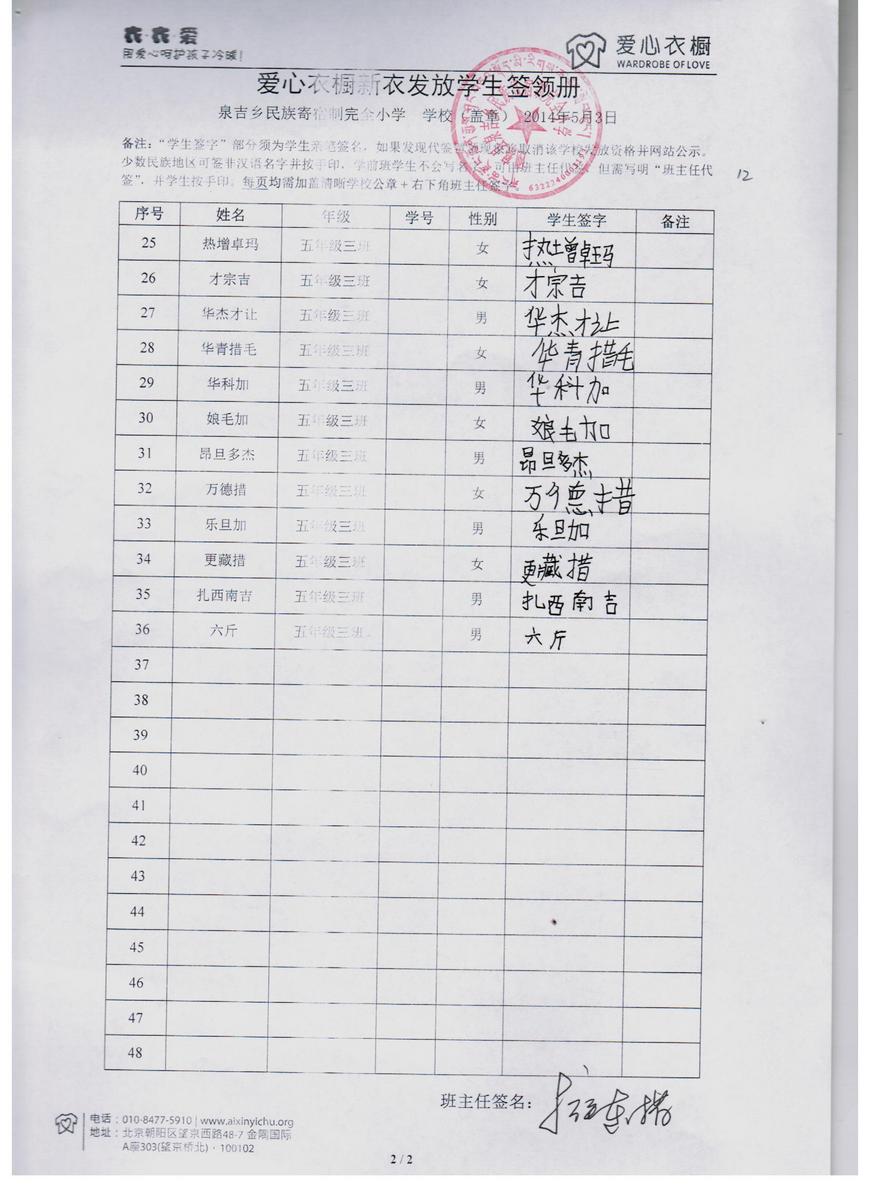 衣·衣·爱
用爱心呵护孩子冷暖!
爱心衣橱
WARDROBE OF LOVE
爱心衣橱新衣发放学生签领册
泉吉乡民族寄宿制完全小学 学校（盖章） 2014年5月3日
备注：“学生签字”部分须为学生亲笔签名，如果发现代签 现象将取消该学校发放资格并网站公示。
少数民族地区可签非汉语名字并按手印，学前班学生不会写名 可由班主任代签，但需写明“班主任代
签”，并学生按手印。每页均需加盖清晰学校公章+右下角班主任签字
12
序号 姓名 年级 学号 性别 学生签字 备注
25 热增卓玛 五年级三班 女 热增卓玛
26 才宗吉 五年级三班 女 才宗吉
27 华杰才让 五年级三班 男 华杰才让
28 华青措毛 五年级三班 女 华青措毛
29 华科加 五年级三班 男 华科加
30 娘毛加 五年级三班 女 娘毛加
31 昂旦多杰 五年级三班 男 昂旦多杰
32 万德措 五年级三班 女 万德措
33 乐旦加 五年级三班 男 乐旦加
34 更藏措 五年级三班 女 更藏措
35 扎西南吉 五年级三班 男 扎西南吉
36 六斤 五年级三班 男 六斤
37
38
39
40
41
42
43
44
45
46
47
48
班主任签名：
电话：010-8477-5910 | www.aixinyichu.org
地址：北京朝阳区望京西路48-7 金隅国际
A座303(望京桥北)·100102
2 / 2